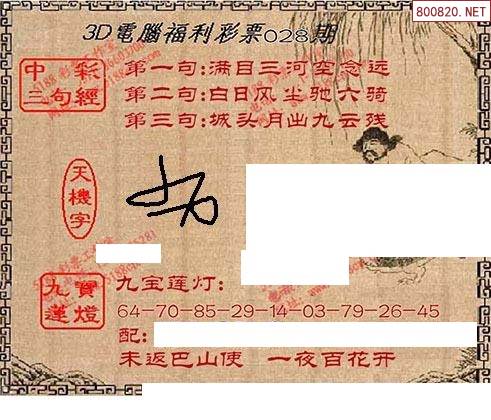 800820.NET
3D電腦福利彩票028期
中 彩
三句經
第一句:满目三河空念远
第二句:白日风尘驰六骑
第三句:城头月出九云残
天機字
九寶
蓮燈
九宝莲灯:
64-70-85-29-14-03-79-26-45
配:
未返巴山使 一夜百花开